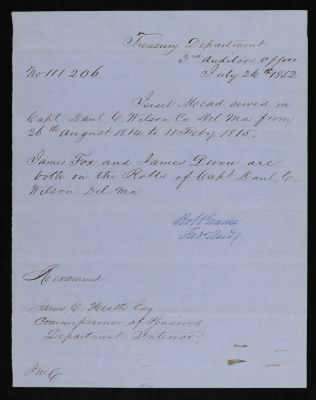 Treasury Department
3rd Auditors Office
July 26th 1852
No 111.206.
Israel Mead served in
Capt Danl C Wilson Co Del Ma from
26th August 1814 to 11 Feby 1815.
James Fox and James Dixon are
both on the Rolls of Capt Danl C.
Wilson Del Ma
Actg Aud
James E. Heath Esq
Commissioner of Pensions
Department Interior